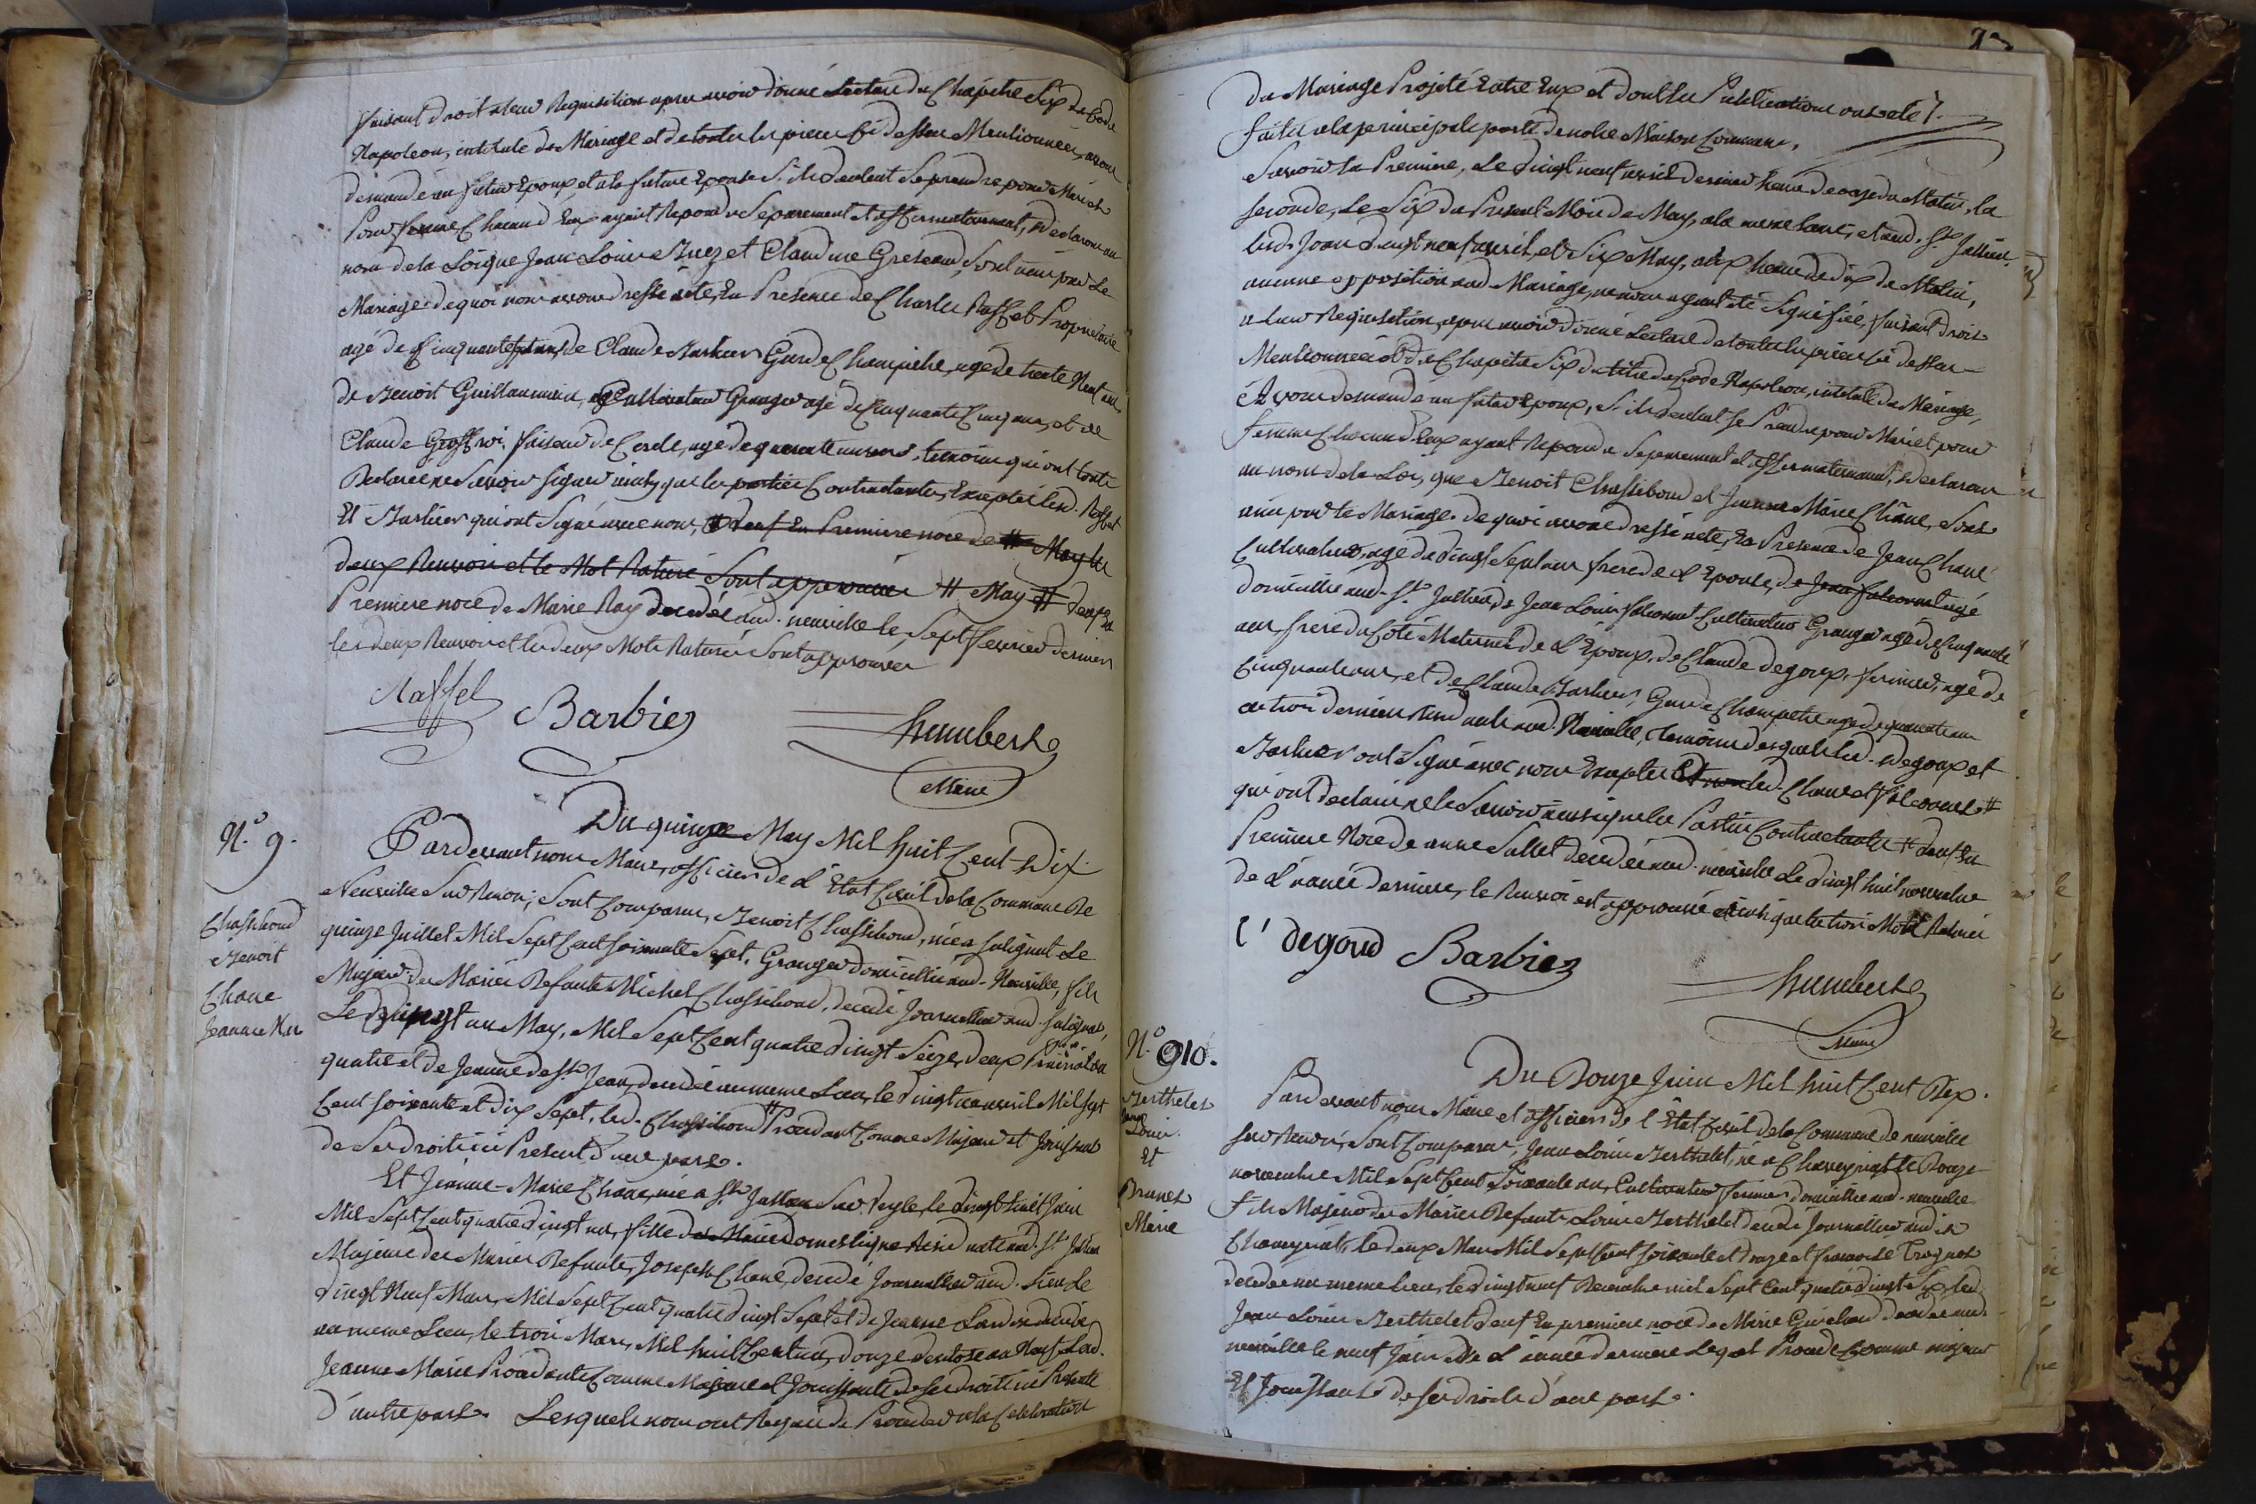 faisant droit a leur Requisition apres avoir donné Lecture du Chapitre Six du Code
Napoleon, intitulé du Mariage et de toutes les pieces ci dessus Mentionnées, avons
demandé au futur Epoux et a la future Epouse S'ils veulent Se prendre pour Mari et
Pour femme, Chacun d'Eux ayant Repondu Séparement et affirmativement, declarons au
nom de la Loi que Jean Louis et Claudine Sont unis par Le
Mariage. de quoi nous avons dressé acte, En Presence de Charles Raffet Proprietaire
agé de Cinquante ans, de Claude Barbier Garde Champêtre, agé de trente Neuf ans,
de Benoit Guillaumin, Cultivateur Granger agé de Cinquante Cinq ans, et de
Claude faiseur de Cercle, agé de quarante ans, temoins qui ont tous
Declaré ne Savoir Signer ainsi que les parties Contractantes, Excepté led. Raffet
Et Barbier qui ont Signé avec nous, # Veuf En Premiere noce de # May les
deux Renvois et le Mot Raturé Sont approuvés # May # Veuf En
Premiere noce de Marie Ray decedée aud. neuville le Sept fevrier dernier
les deux Renvois et les deux Mots Raturés Sont approuvés
Raffet
Barbier
humbert
Maire
N.° 9.
Du quinze May Mil huit Cent Dix.
Pardevant nous Maire, officier de L'Etat Civil de la Commune De
Chassiboud
Benoit
Chane
Jeanne Mie
Neuville Sur Renon; Sont Comparus, Benoit Chassiboud, né a Salignat Le
quinze Juillet Mil Sept Cent Soixante Sept, Granger domicillié aud. Neuville, fils
Majeur de Mariés Defunts Michel Chassiboud, decedé Journallier aud. Salignat,
Le vingt un May, Mil Sept Cent quatre vingt Seize, deux Prairial an
quatre et de Jeanne de St. Jean, decedée au meme Lieu, le vingt un avril Mil Sept
Cent Soixante et dix Sept, led. Chassiboud # Procédant Comme Majeur et Jouissant
de Ses droits ici Present d'une part.
Et Jeanne-Marie Chane, née a St. Jullien Sur Veyle, le vingt huit Juin
Mil Sept Cent quatre vingt un, fille de Mariés domestique Resid.
Majeure de Mariés Defunts, Joseph Chane, decedé Journallier aud. Lieu Le
vingt Neuf Mars, Mil Sept Cent quatre vingt Sept et de Jeanne decedée
au meme Lieu, le trois Mars, Mil huit Cent un, douze Ventose an Neuf Lad.
Jeanne Marie Procédante Comme Majeure et Jouissante de Ses droits ici Presente
d'autre part. Lesquels nous ont Requis de Proceder a la Celebration
du Mariage Projeté Entre Eux et dont les Publications ont eté
faites a la principale porte de notre Maison Commune,
Savoir la Premiere, Le vingt neuf avril dernier heure de onze du Matin, la
Seconde, Le Six du Present Mois de May, a la meme heure, et aud. St. Jullien,
lesd. Jours vingt neuf avril, et Six May, heure de dix du Matin,
aucune opposition aud. Mariage, ne nous ayant été Signifiée, faisant droit
a leur Requisition, apres avoir donné Lecture de toutes les pieces ci dessus
Mentionnées et du Chapitre Six du titre du Code Napoleon, intitulé du Mariage,
Avons demandé au futur Epoux, S'ils veulent Se Prendre pour Mari et pour
femme Chacun d'Eux ayant Repondu Séparement et affirmativement, declarons
au nom de la Loi, que Benoit Chassiboud et Jeanne Marie Chane, Sont
unis par le Mariage. de quoi avons dressé acte, En Presence de Jean Chane
Cultivateur, agé de vingt Sept ans frere de L'Epouse, de
domicillié aud. St. Jullien, de Jean Louis Cultivateur Granger agé de Cinquante
ans, frere du Coté Maternel de L'Epoux, de Claude degoux, fermier, agé de
Cinquante ans, et de Claude Barbier, Garde Champetre agé de quarante ans
ces trois derniers aud. Neuville, temoins desquels led. degoux et
Barbier ont Signé avec nous Excepté lesd. Chane et #
qui ont declaré ne le Savoir ainsi que les Parties Contractantes # Veuf En
Premiere Noce de anne Sallet decedée aud. neuville Le vingt huit novembre
de L'année derniere, le Renvoi est approuvé ainsi que les trois Mots Raturés
C. degoud
Barbier
humbert
Maire
N.° 10.
Du Douze Juin Mil huit Cent Dix.
Berthelet
Jean
Louis
Et
Brunet
Marie
Pardevant nous Maire et officier de L'Etat Civil de la Commune de neuville
Sur Renon, Sont Comparus, Jean Louis Berthelet, né a Chaveyriat le Douze
novembre Mil Sept Cent Soixante un, Cultivateur fermier domicillié aud. neuville
Fils Majeur de Mariés Defunts Louis Berthelet decedé Journallier audit
Chaveyriat, le deux Mars Mil Sept Cent Soixante et treize et francoise
decedée au meme Lieu, le vingt neuf Decembre mil Sept Cent quatre vingt Six, led.
Jean Louis Berthelet Veuf En premiere noce de Marie Guichard decedée aud.
neuville le neuf Juin de L'année derniere Lequel Procede Comme majeur
Et Jouissant de Ses droits d'une part.